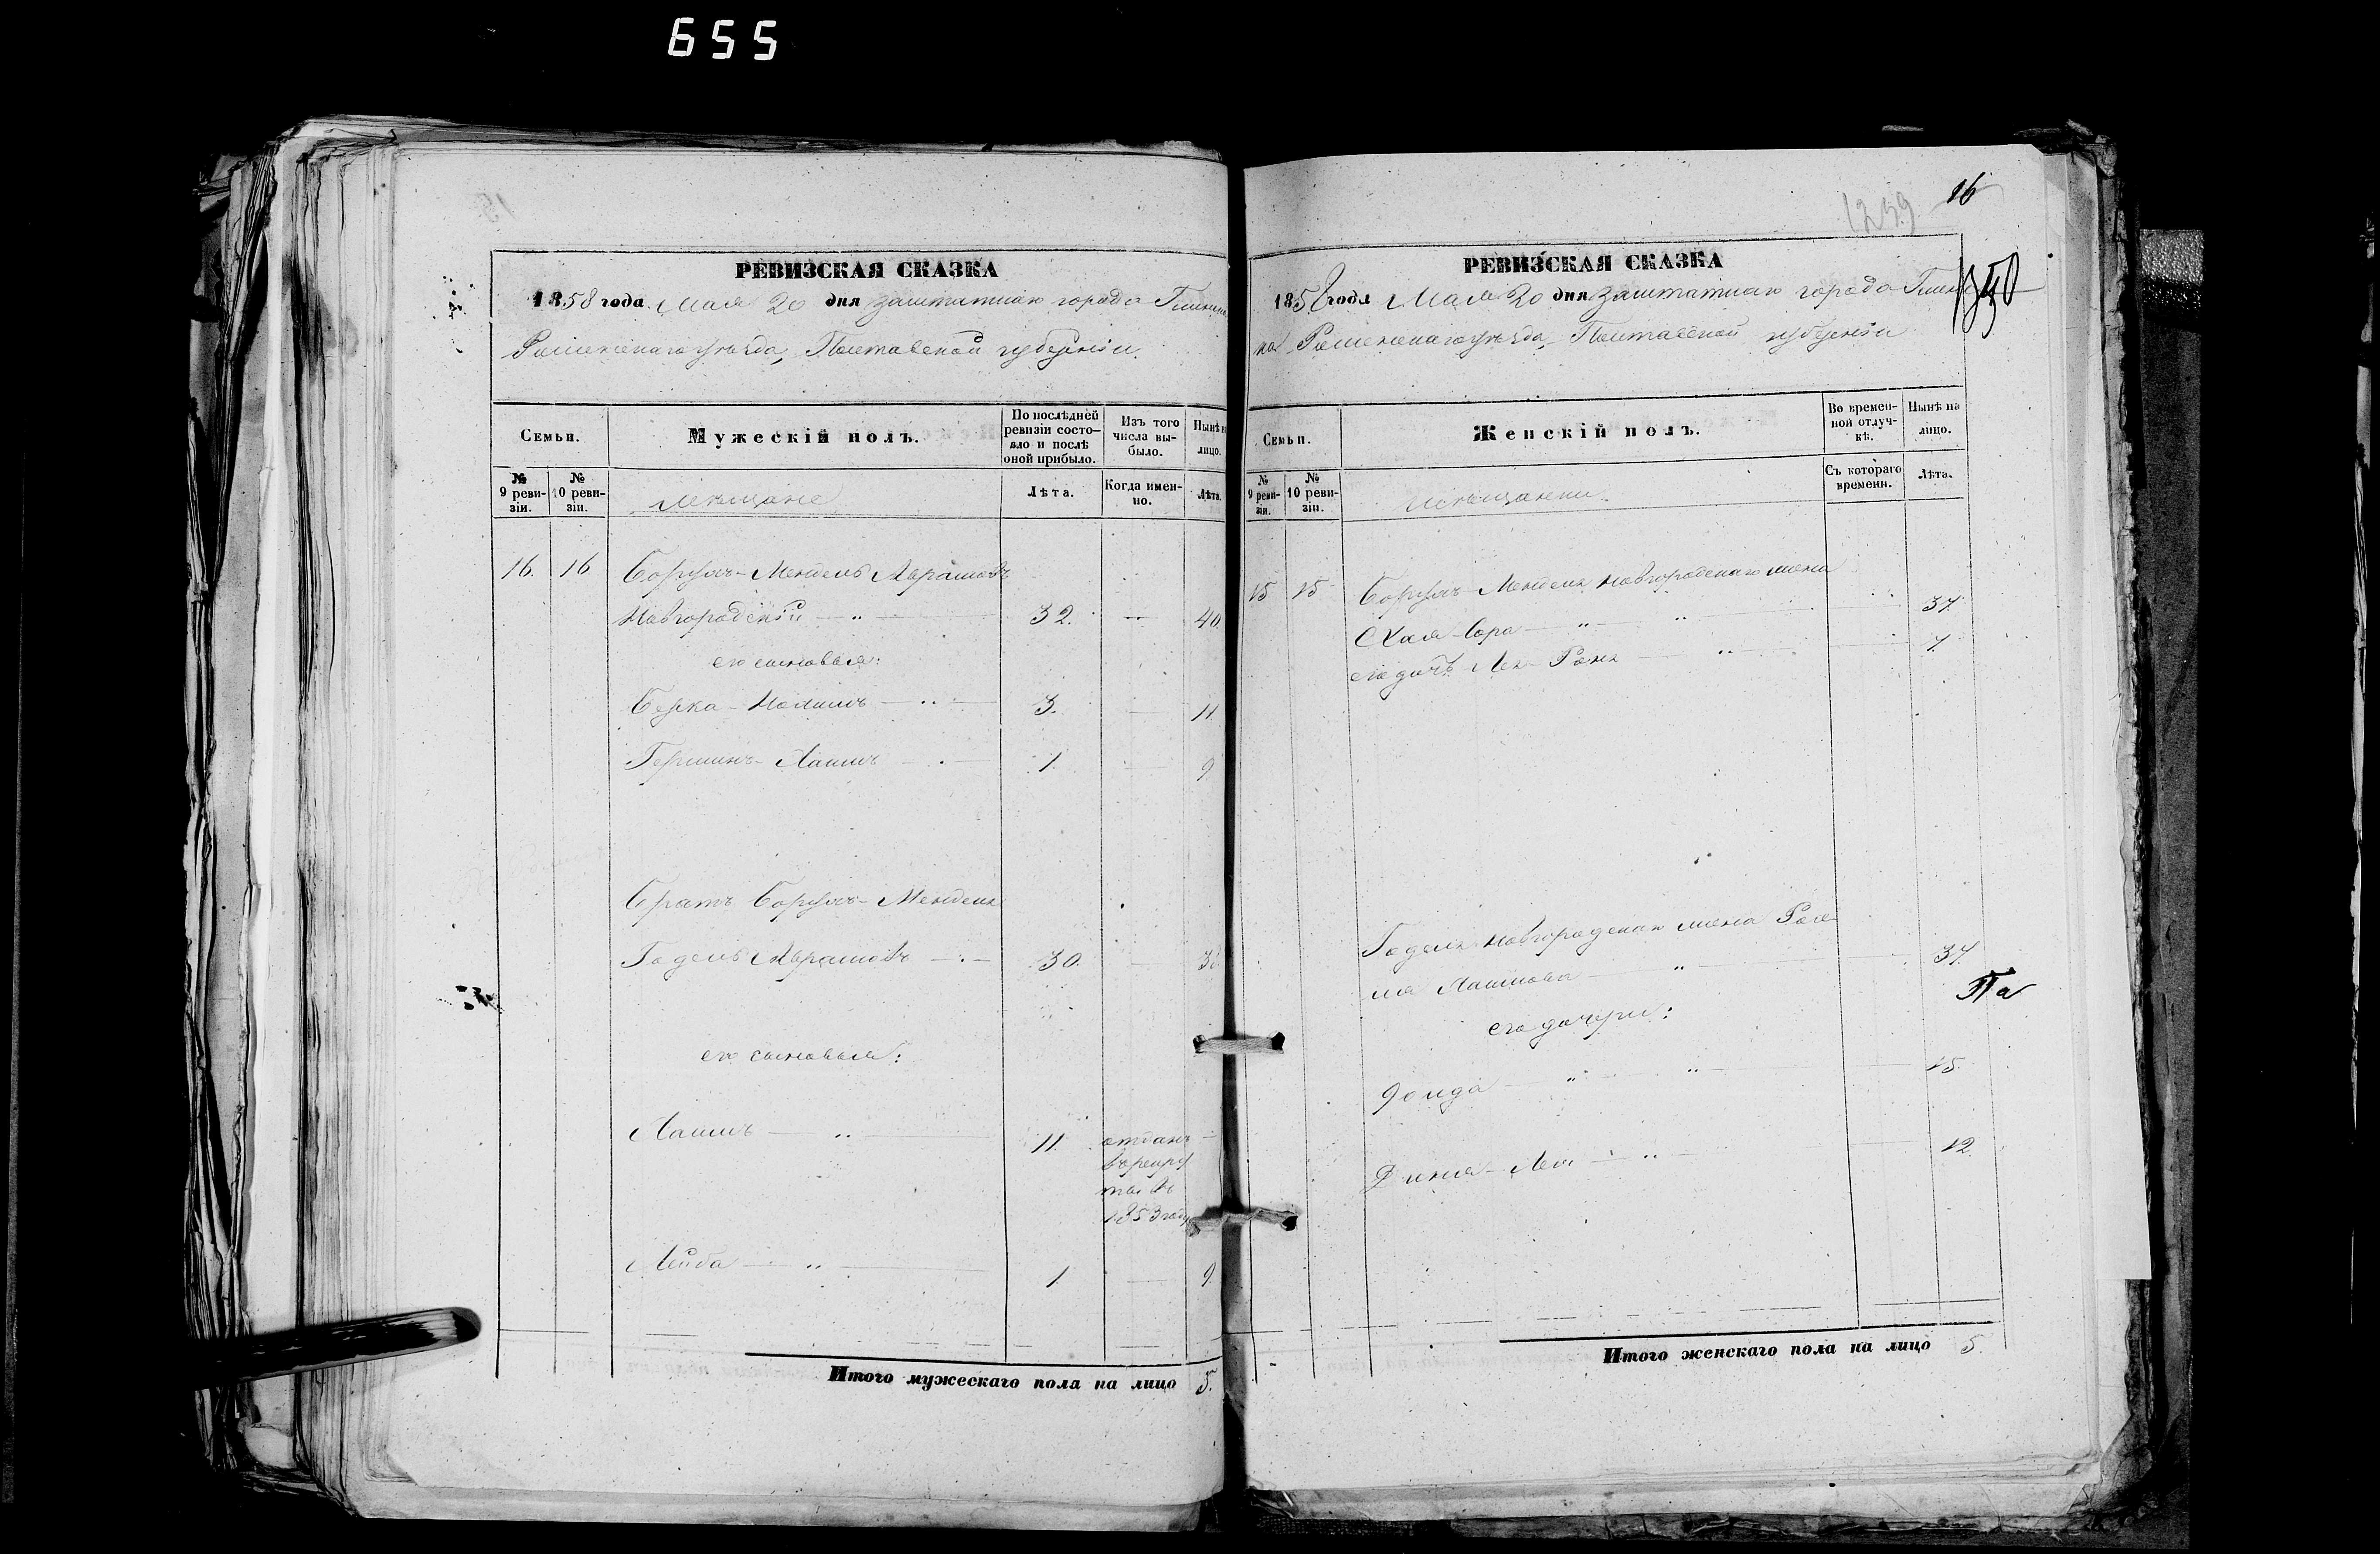 655
РЕВИЗСКАЯ СКАЗКА
1858 года Мая 20 дня заштатнаго города Глинска
Роменскаго уѣзда, Полтавской губерніи
Семьи.
Мужескій полъ.
По послѣдней ревизіи состояло и послѣ оной прибыло.
Изъ того числа выбыло.
Нынѣ на лицо.
№ 9 ревизіи.
№ 10 ревизіи.
мѣщане
Лѣта.
Когда именно.
Лѣта.
16. 16 Борухъ-Мендель Абрамовъ
Новгородскій — „ — 32. — 40.
его сыновья:
Берка-Нохимъ — „ — 3. — 11
Гершинъ-Хаимъ — 1. — 9
Братъ Борухъ-Менделя
Годель Абрамовъ — 30. —
его сыновья:
Хаимъ — „ — 11. отданъ —
въ рекру
ты въ
1853 году
Лейба — „ — 1. — 9.
Итого мужескаго пола на лицо 5.
16
1259
РЕВИЗСКАЯ СКАЗКА
1858 года Мая 20 дня заштатнаго города Глинс
ка Роменскаго уѣзда, Полтавской губерніи
Семьи.
Женскій полъ.
Во временной отлучкѣ.
Нынѣ на лицо.
№ 9 ревизіи.
№ 10 ревизіи.
мѣщанки.
Съ котораго времени.
Лѣта.
15 15 Борухъ-Менделя Новгородскаго жена
Хая-Сора — „ — „ — 37.
его дочь Леа — „ — 7.
Годеля Новгородскаго жена
Хаимова — „ — 37.
его дочери:
— „ — „ — 15.
— „ — 12.
Итого женскаго пола на лицо 5.